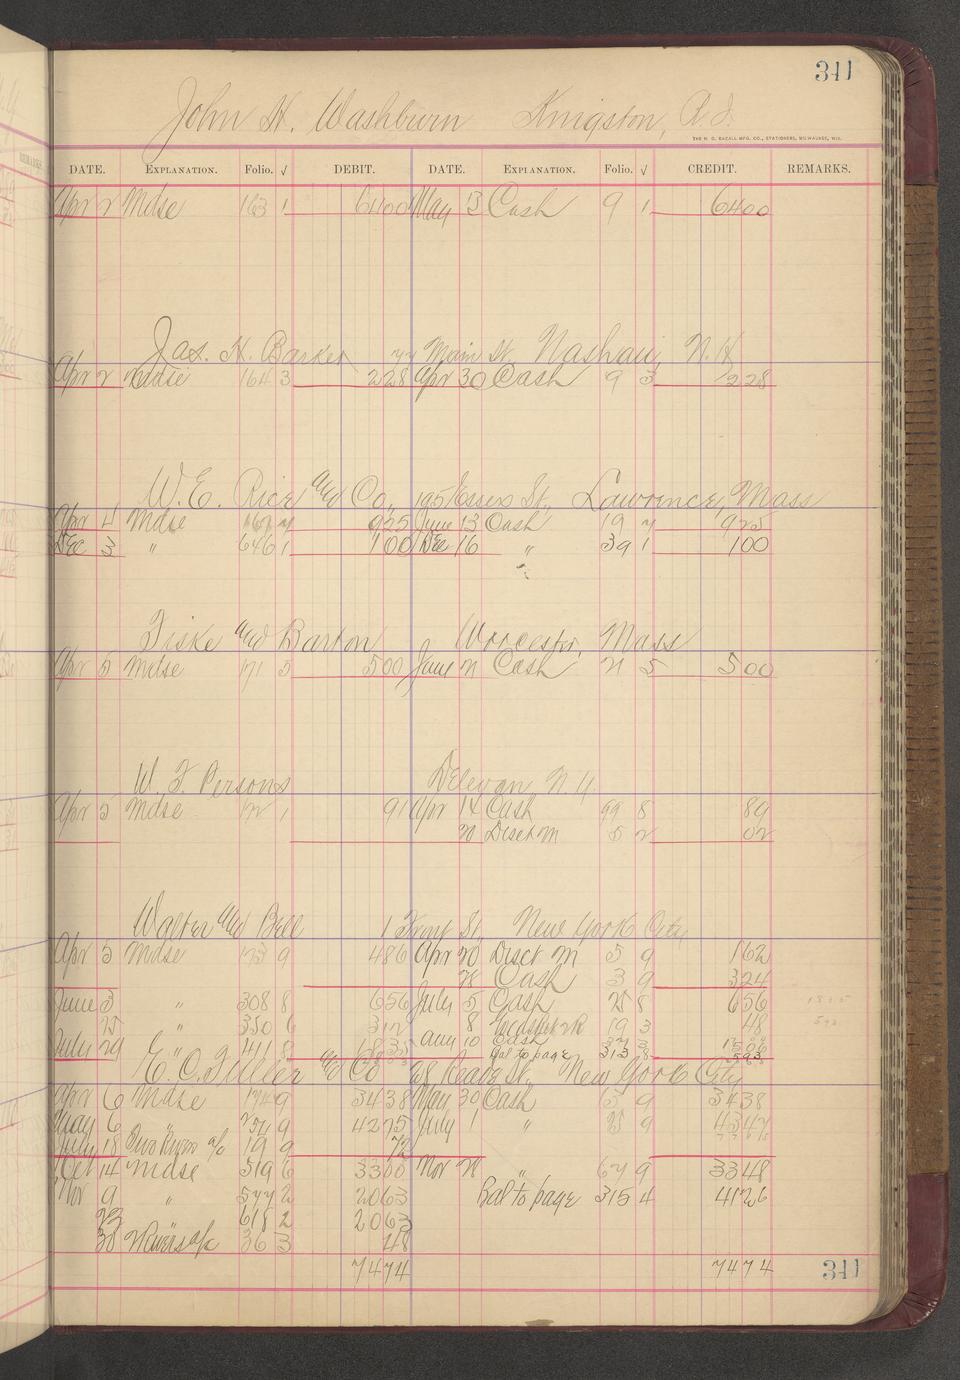 341
John H. Washburn Kingston, R.I.
THE H. G. RAZALL MFG. CO., STATIONERS, MILWAUKEE, WIS.
DATE. EXPLANATION. Folio. √ DEBIT. DATE. EXPLANATION. Folio. √ CREDIT. REMARKS.
Apr 2 Mdse 163 1 6400 May 13 Cash 9 1 6400
Jas. H. Barker 77 Main St. Nashau, N.H
Apr 2 Mdse 164 3 228 Apr 30 Cash 9 3 228
W.E. Rice and Co., 195 Essex St., Lawrence, Mass
Apr 4 Mdse 925 June 13 Cash 19 7 925
Dec 3 " 646 1 100 Dec 16 " 39 1 100
Fiske and Barton Worcester, Mass
Apr 5 Mdse 171 5 500 June 21 Cash 21 5 500
W. F. Persons Delevan N.Y.
Apr 5 Mdse 172 1 91 Apr 14 Cash 99 8 89
20 Disct M 5 2 02
Walter and Bell 1 St. New York City
Apr 5 Mdse 173 9 486 Apr 20 Disct M 5 9 162
28 Cash 3 9 324
June 3 " 308 8 656 July 5 Cash 25 8 656
25 " 350 6 312 8 19 3 48
July 29 " 411 8 1835 Aug 10 Cash 37 3 1506
Bal to page 313 8 593
E. C. Fuller and Co 28 Reade St., New York City
Apr 6 Mdse 174 9 3438 May 30 Cash 5 9 3438
May 6 " 9 4275 July 1 " 25 9 4347
July 18 a/c 19 9 72
Oct 14 Mdse 519 6 3300 Nov 21 " 67 9 3348
Nov 9 " 577 2 2063 Bal to page 315 4 4126
23 " 618 2 2063
30 a/c 36 3 48
7474 7474
341